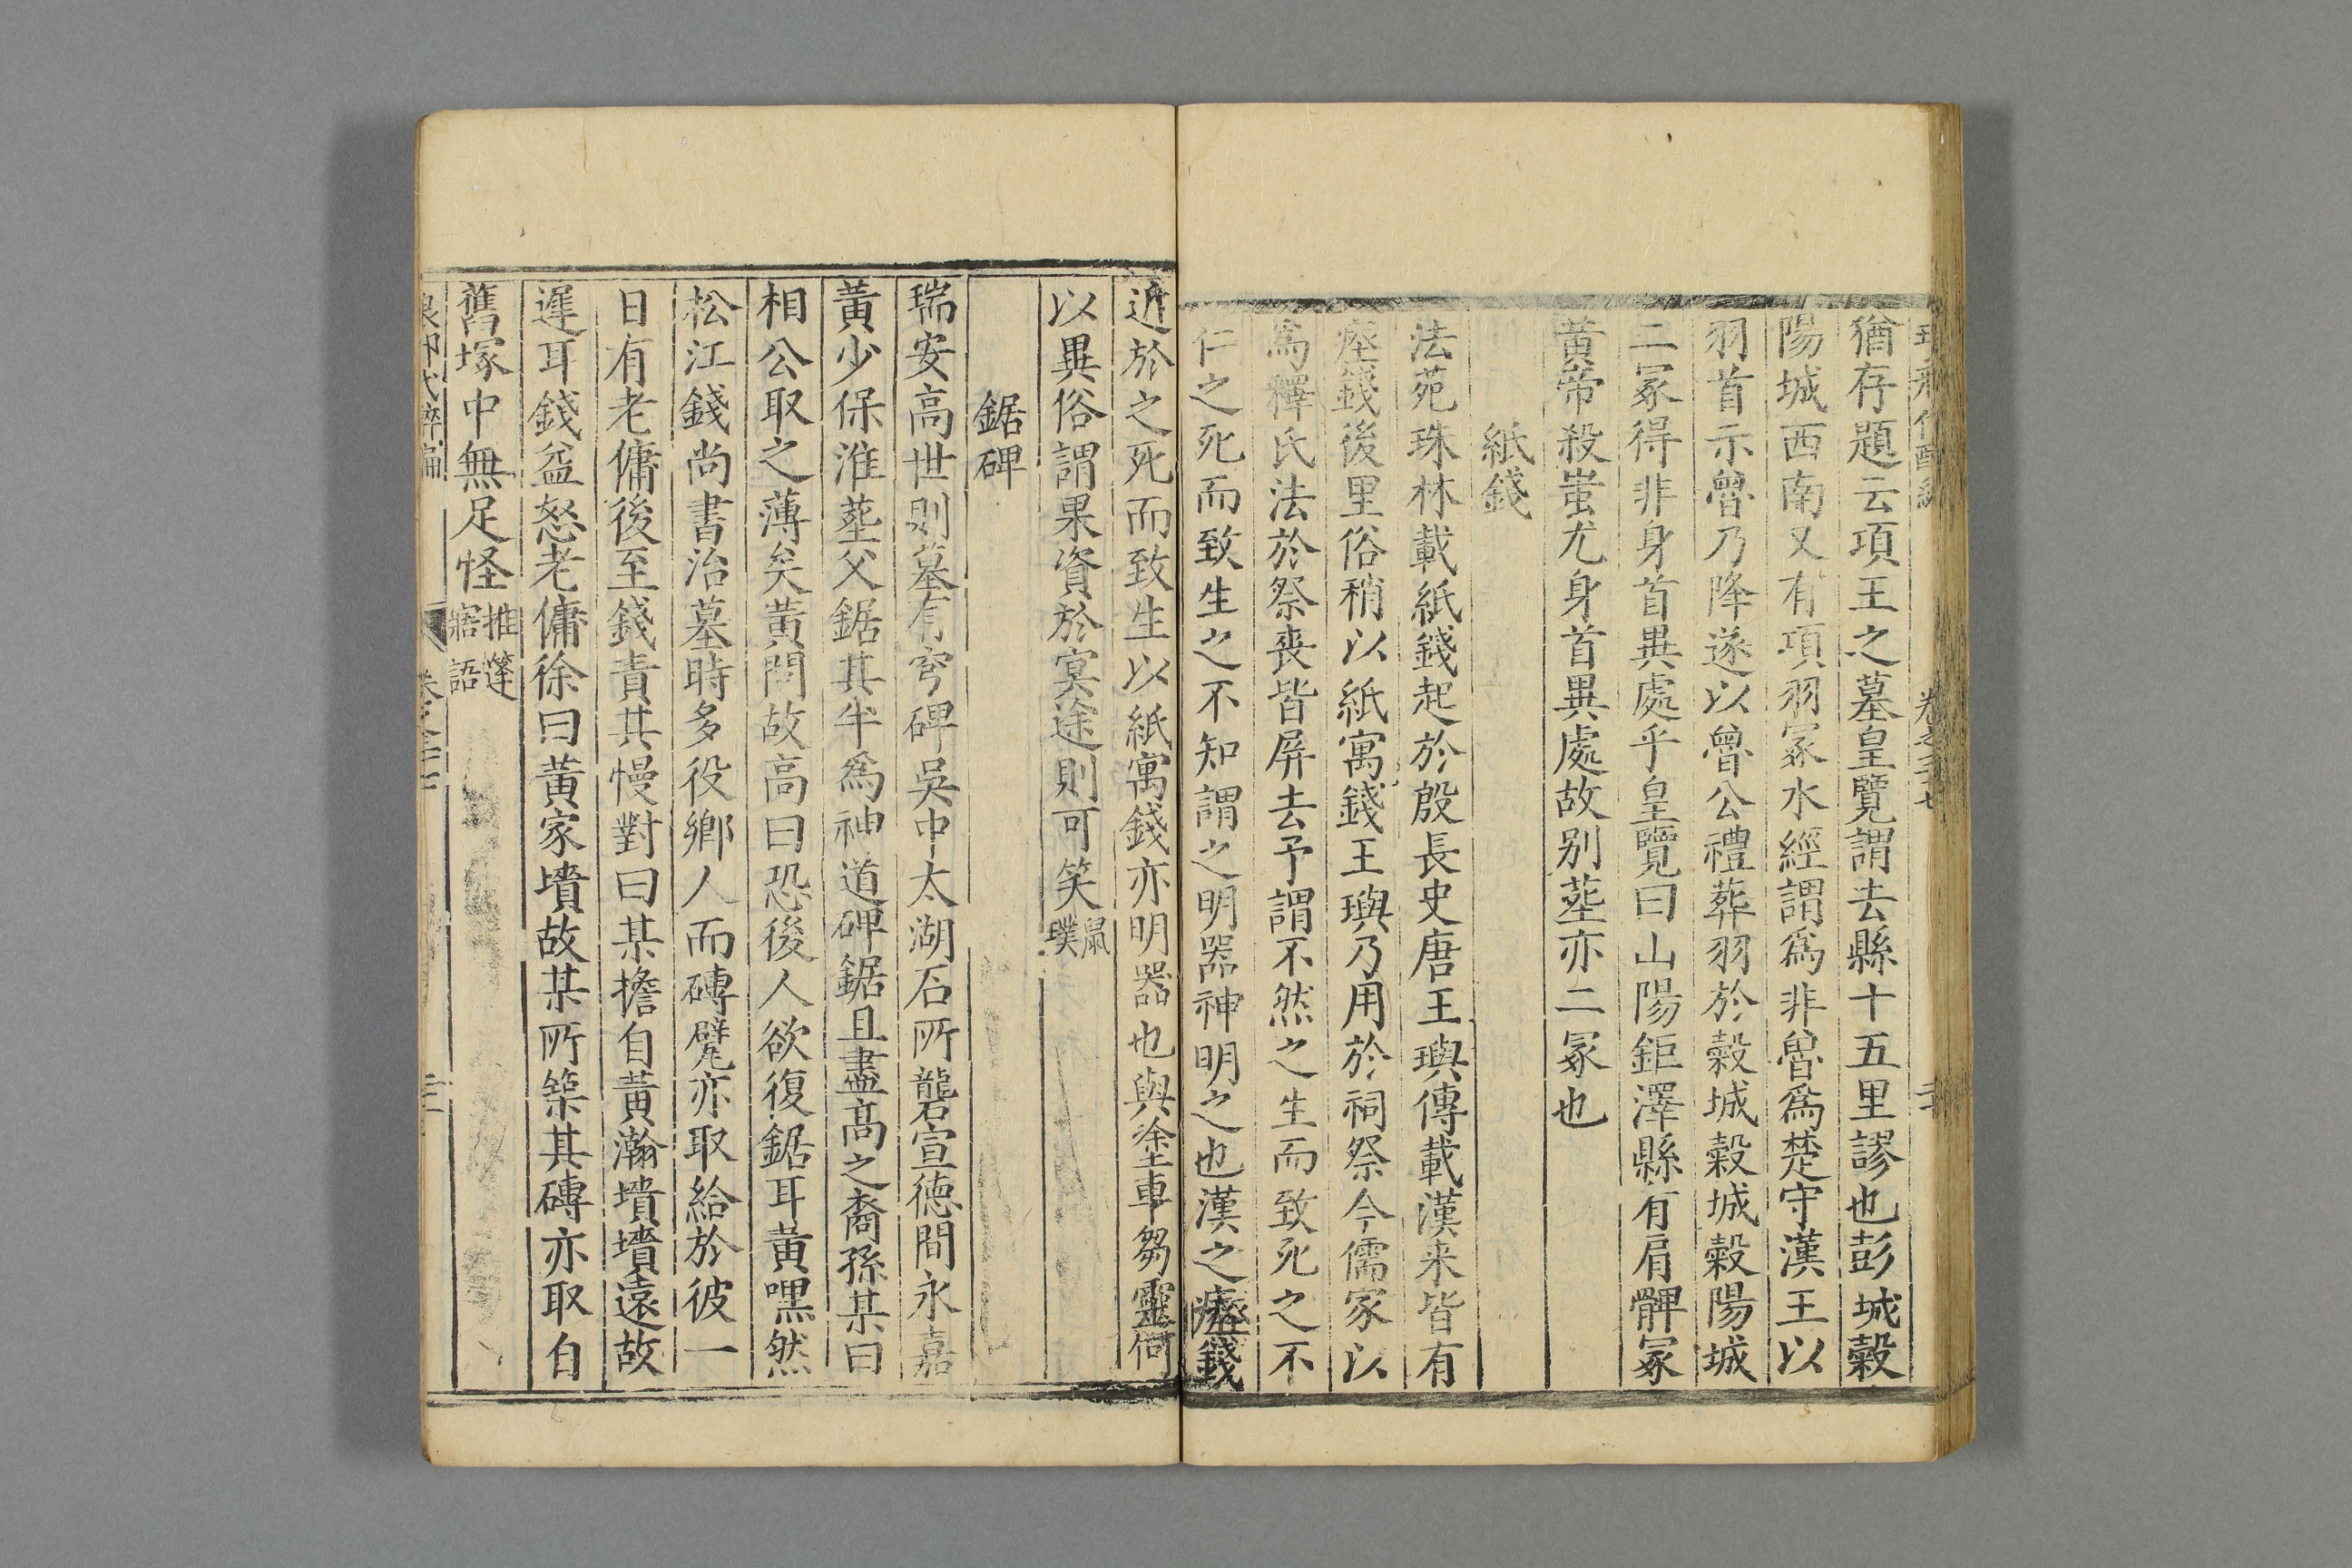 猶存題云項王之墓皇覽謂去縣十五里謬也彭城穀
陽城西南又有項羽冢水經謂爲非魯爲楚守漢王以
羽首示魯乃降遂以魯公禮葬羽於穀城穀城穀陽城
二冢得非身首異處乎皇覽曰山陽鉅澤縣有肩髀冢
黃帝殺蚩尤身首異處故别塟亦二冢也
紙錢
法苑珠林載紙錢起於殷長史唐王璵傳載漢来皆有
瘞錢後里俗稍以紙寓錢王璵乃用於祠祭今儒家以
爲釋氏法於祭喪皆屏去予謂不然之生而致死之不
仁之死而致生之不知謂之明器神明之也漢之瘞錢
近於之死而致生以紙寓錢亦明器也與塗車芻靈何
以異俗謂果資於冥途則可笑 鼠璞
鋸碑
瑞安高世則墓有穹碑吳中太湖石所礱宣德間永嘉
黃少保淮塟父鋸其半爲神道碑鋸且盡高之裔孫某曰
相公取之薄矣黃問故高曰恐後人欲復鋸耳黃嘿然
松江錢尚書治墓時多役鄉人而磚甓亦取給於彼一
日有老傭後至錢責其慢對曰某擔自黃瀚墳墳遠故
遲耳錢益怒老傭徐曰黃家墳故某所築其磚亦取自
舊塚中無足怪 推篷寤語